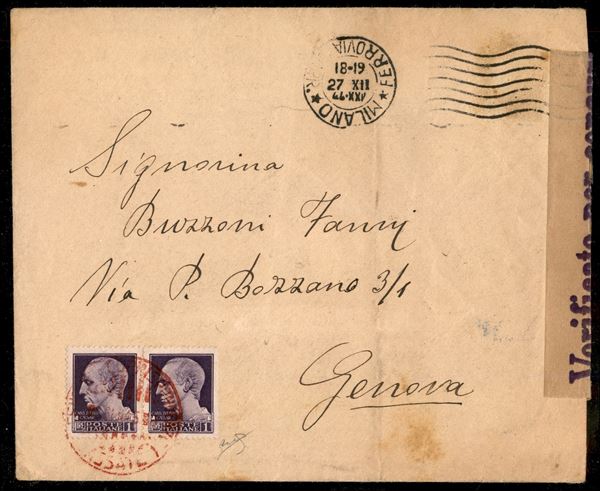 MILANO FERROVIA
18-19
27 XII
44·XXI
Signorina
Buzzoni Fanny
Via P. Bozzano 3/1
Genova
POSTE ITALIANE 1
POSTE ITALIANE 1
Verificato per censura